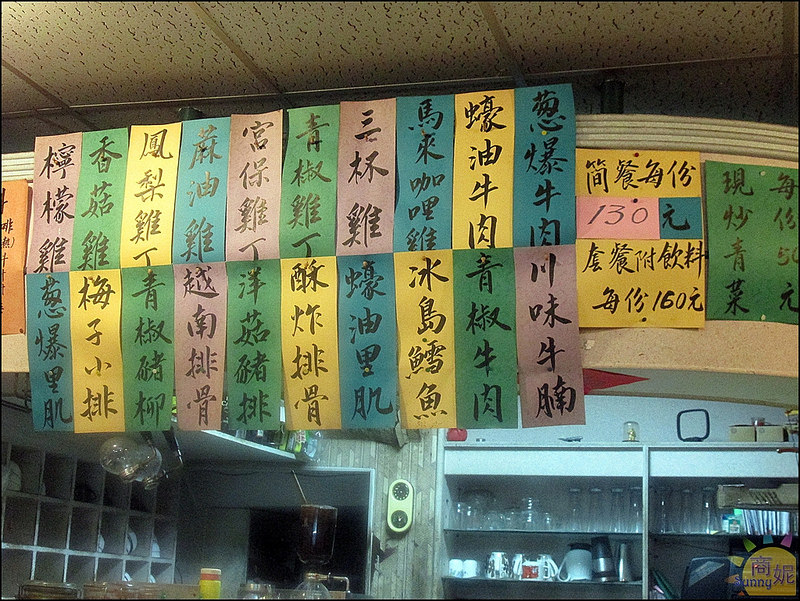 葱爆牛肉
蠔油牛肉
馬來咖哩雞
三杯雞
青椒雞丁
宮保雞丁
蔴油雞
鳳梨雞丁
香菇雞
檸檬雞
川味牛腩
青椒牛肉
冰島鱈魚
蠔油里肌
酥炸排骨
洋菇豬排
越南排骨
青椒豬柳
梅子小排
葱爆里肌
简餐每份
130元
套餐附飲料
每份160元
每份50元
現炒青菜
商妮
Sunny